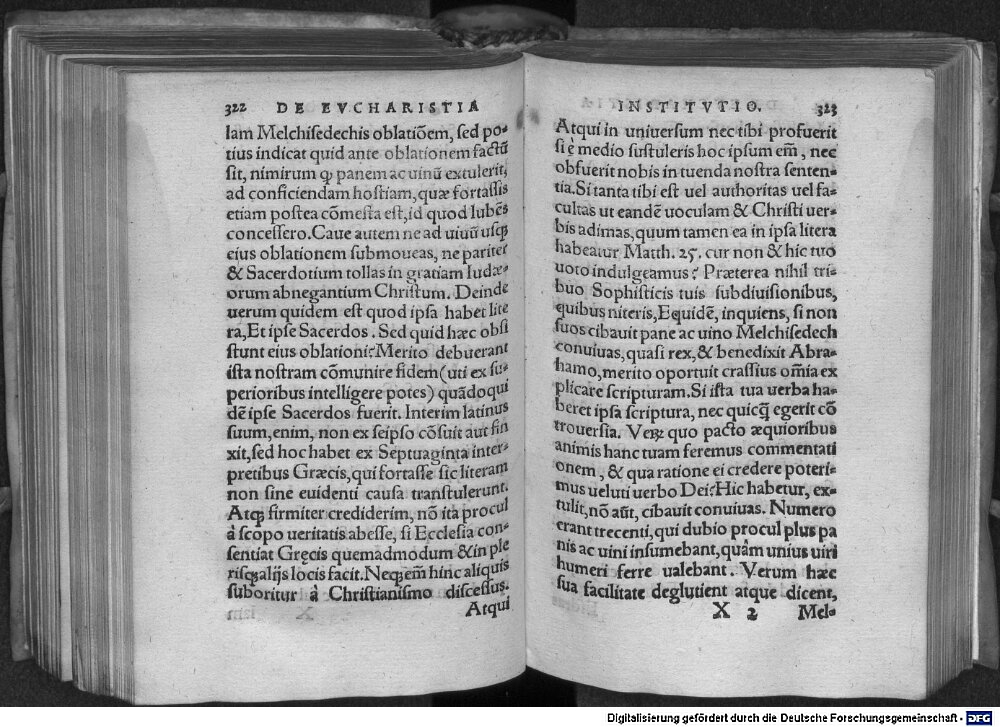 322 DE EVCHARISTIA
lam Melchisedechis oblatiõem, sed po-
tius indicat quid ante oblationem factũ
sit, nimirum ꝙ panem ac uinũ extulerit,
ad conficiendam hostiam, quæ fortassis
etiam postea cõmesta est, id quod lubẽs
concessero. Caue autem ne ad uiuũ usqꝫ
eius oblationem submoueas, ne pariter
& Sacerdotium tollas in gratiam Iudæ-
orum abnegantium Christum. Deinde
uerum quidem est quod ipsa habet lite
ra, Et ipse Sacerdos. Sed quid hæc obsi
stunt eius oblationi? Merito debuerant
ista nostram cõmunire fidem (uti ex su-
perioribus intelligere potes) quãdoqui
dẽ ipse Sacerdos fuerit. Interim latinus
suum, enim, non ex seipso cõsuit aut fin
xit, sed hoc habet ex Septuaginta inter-
pretibus Græcis, qui fortasse sic literam
non sine euidenti causa transtulerunt.
Atqꝫ firmiter crediderim, nõ ita procul
à scopo ueritatis abesse, si Ecclesia con-
sentiat Gręcis quemadmodum & in ple
risqꝫ alijs locis facit. Neqꝫ em̃ hinc aliquis
suboritur à Christianismo discessus.
Atqui
INSTITVTIO. 323
Atqui in uniuersum nec tibi profuerit
si è medio sustuleris hoc ipsum em̃, nec
obfuerit nobis in tuenda nostra senten-
tia. Si tanta tibi est uel authoritas uel fa-
cultas ut eandẽ uoculam & Christi uer-
bis adimas, quum tamen ea in ipsa litera
habeatur Matth. 25. cur non & hic tuo
uoto indulgeamus? Præterea nihil tri-
buo Sophisticis tuis subdiuisionibus,
quibus niteris, Equidẽ, inquiens, si non
suos cibauit pane ac uino Melchisedech
conuiuas, quasi rex, & benedixit Abra-
hamo, merito oportuit crassius om̃ia ex
plicare scripturam. Si ista tua uerba ha-
beret ipsa scriptura, nec quicq̃ egerit cõ
trouersia. Veꝝ quo pacto æquioribus
animis hanc tuam feremus commentati
onem, & qua ratione ei credere poteri-
mus ueluti uerbo Dei? Hic habetur, ex-
tulit, nõ aũt, cibauit conuiuas. Numero
erant trecenti, qui dubio procul plus pa
nis ac uini insumebant, quâm unius uiri
humeri ferre ualebant. Verum hæc
sua facilitate deglutient atque dicent,
X 2 Mel-
Digitalisierung gefördert durch die Deutsche Forschungsgemeinschaft - DFG